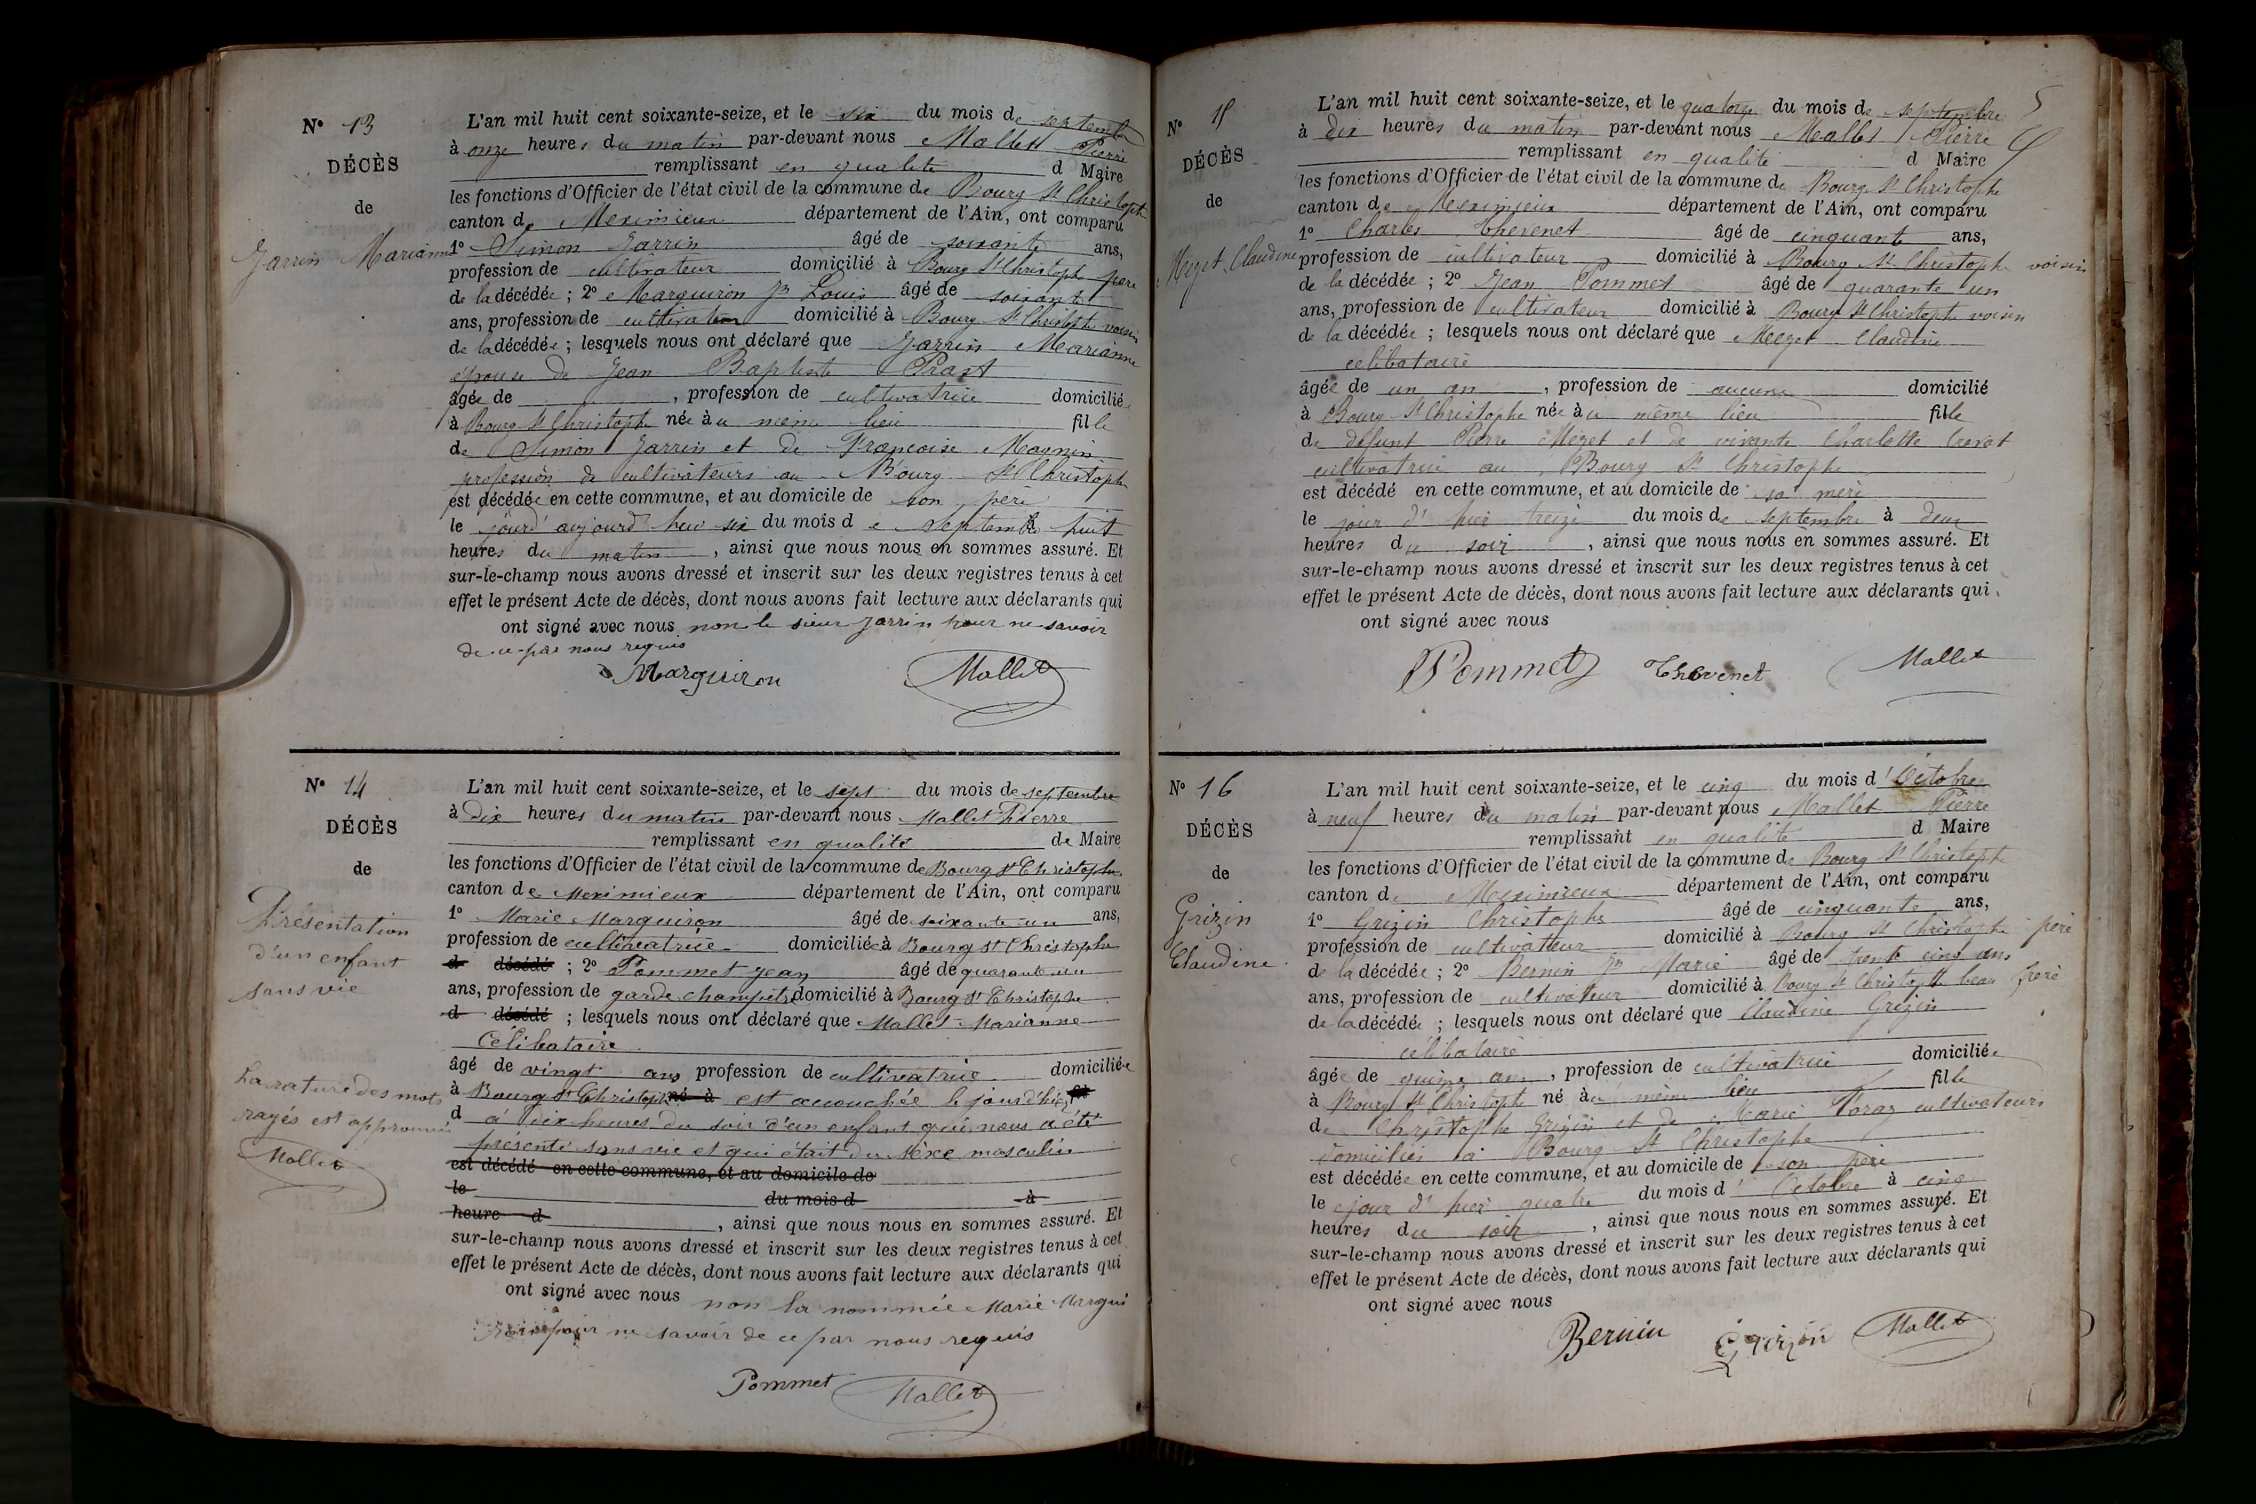 N° 13
DÉCÈS
de
Jarrin Marianne
L'an mil huit cent soixante-seize, et le six du mois de septembre
à onze heures du matin par-devant nous Mallet Pierre
remplissant en qualité d Maire
les fonctions d'Officier de l'état civil de la commune de Bourg St Christophe
canton de Meximieux département de l'Ain, ont comparu
1° Simon Jarrin âgé de soixante ans,
profession de cultivateur domicilié à Bourg St Christophe père
de la décédée ; 2° Marguiron Jn Louis âgé de soixante
ans, profession de cultivateur domicilié à Bourg St Christophe voisin
de la décédée ; lesquels nous ont déclaré que Jarrin Marianne
épouse de Jean Baptiste Prast
âgée de , profession de cultivatrice domiciliée
à Bourg St Christophe née au même lieu fille
de Simon Jarrin et de Françoise Magnin
profession de cultivateurs au Bourg St Christophe
est décédée en cette commune, et au domicile de son père
le jourd' aujourd' hui six du mois de septembre huit
heures du matin , ainsi que nous nous en sommes assuré. Et
sur-le-champ nous avons dressé et inscrit sur les deux registres tenus à cet
effet le présent Acte de décès, dont nous avons fait lecture aux déclarants qui
ont signé avec nous non le sieur Jarrin pour ne savoir
de ce par nous requis
Marguiron Mallet
N° 14
DÉCÈS
de
Présentation
d'un enfant
sans vie
La rature des mots
rayés est approuvée
Mallet
L'an mil huit cent soixante-seize, et le sept du mois de septembre
à Dix heures du matin par-devant nous Mallet Pierre
remplissant en qualité de Maire
les fonctions d'Officier de l'état civil de la commune de Bourg St Christophe
canton de Meximieux département de l'Ain, ont comparu
1° Marie Marguiron âgé de soixante-un ans,
profession de cultivatrice domiciliée à Bourg St Christophe
d décédé ; 2° Pommet Jean âgé de quarante un
ans, profession de garde champêtre domicilié à Bourg St Christophe
d décédé ; lesquels nous ont déclaré que Mallet Marianne
Célibataire
âgé de vingt ans profession de cultivatrice domiciliée
à Bourg St Christophe né à est accouchée le jour d'hier fil
d à dix heures du soir d'un enfant qui nous a été
présenté sans vie et qui était du sexe masculin
est décédé en cette commune, et au domicile de
le du mois d à
heure d , ainsi que nous nous en sommes assuré. Et
sur-le-champ nous avons dressé et inscrit sur les deux registres tenus à cet
effet le présent Acte de décès, dont nous avons fait lecture aux déclarants qui
ont signé avec nous non la nommée Marie Margui
pour ne savoir de ce par nous requis
Pommet Mallet
N° 15
DÉCÈS
de
Mezet Claudine
5
L'an mil huit cent soixante-seize, et le quatorze du mois de septembre
à dix heures du matin par-devant nous Mallet Pierre
remplissant en qualité d Maire
les fonctions d'Officier de l'état civil de la commune de Bourg St Christophe
canton de Meximieux département de l'Ain, ont comparu
1° Charles Thevenet âgé de cinquante ans,
profession de cultivateur domicilié à Bourg St Christophe voisin
de la décédée ; 2° Jean Pommet âgé de quarante un
ans, profession de cultivateur domicilié à Bourg St Christophe voisin
de la décédée ; lesquels nous ont déclaré que Mezet Claudine
célibataire
âgée de un an , profession de aucune domicilié
à Bourg St Christophe née au même lieu fille
de défunt Pierre Mezet et de vivante Charlotte
cultivatrice au Bourg St Christophe
est décédé en cette commune, et au domicile de sa mère
le jour d' hier treize du mois de septembre à deux
heures du soir , ainsi que nous nous en sommes assuré. Et
sur-le-champ nous avons dressé et inscrit sur les deux registres tenus à cet
effet le présent Acte de décès, dont nous avons fait lecture aux déclarants qui
ont signé avec nous
Pommet Thevenet Mallet
N° 16
DÉCÈS
de
Grizin
Claudine
L'an mil huit cent soixante-seize, et le cinq du mois d'Octobre
à neuf heures du matin par-devant nous Mallet Pierre
remplissant en qualité d Maire
les fonctions d'Officier de l'état civil de la commune de Bourg St Christophe
canton de Meximieux département de l'Ain, ont comparu
1° Grizin Christophe âgé de cinquante ans,
profession de cultivateur domicilié à Bourg St Christophe père
de la décédée ; 2° Bernin Jn Marie âgé de trente cinq ans
ans, profession de cultivateur domicilié à Bourg St Christophe beau frère
de la décédée ; lesquels nous ont déclaré que Claudine Grizin
célibataire
âgée de quinze ans , profession de cultivatrice domiciliée
à Bourg St Christophe né au même lieu fille
de Christophe Grizin et de Marie cultivateurs
domiciliés à Bourg St Christophe
est décédée en cette commune, et au domicile de son père
le jour d' hier quatre du mois d' Octobre à cinq
heures du soir , ainsi que nous nous en sommes assuré. Et
sur-le-champ nous avons dressé et inscrit sur les deux registres tenus à cet
effet le présent Acte de décès, dont nous avons fait lecture aux déclarants qui
ont signé avec nous
Bernin Grizin Mallet